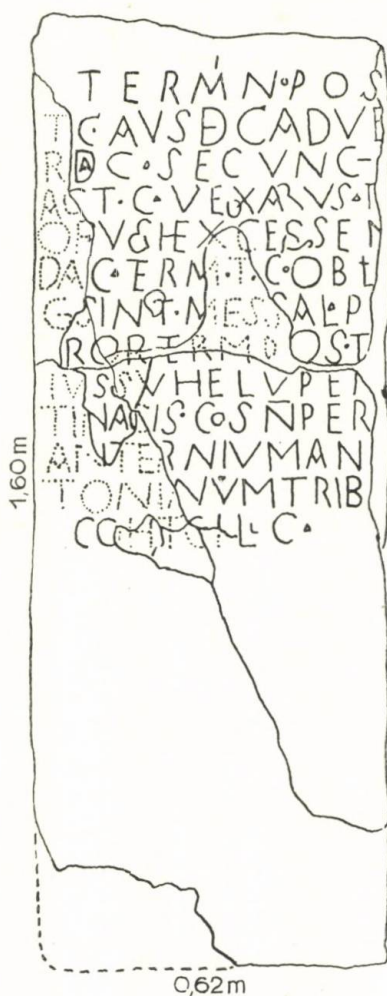 TERMIN·POS
T C·AVSÐCADVE
R A C·SECVNC
AST·C·VEXARVS·
HEXCESSEN
DAC·TERMT·COBL
MESSAL·P
RORTERMO OS·T
IVSSVHELVPER
TINACIS·COSÑPER
AETERNIVMAN
TONINVMTRIB
L C·
1,60m
0,62m